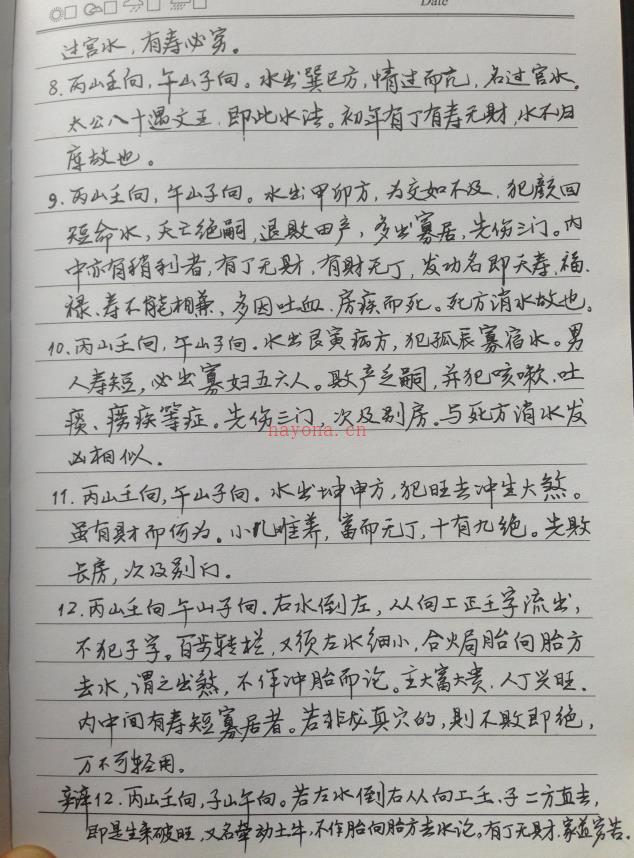 Date
过宫水，有寿必穷。
8.丙山壬向，午山子向。水出巽巳方，情过而亢，名过宫水。
太公八十遇文王，即此水法。初年有丁有寿无财，水不归
库故也。
9.丙山壬向，午山子向。水出甲卯方，为交如不及，犯颜回
短命水，夭亡绝嗣，退败田产，多出寡居，先伤三门。内
中亦有稍利者，有丁无财，有财无丁，发功名即夭寿，福、
禄、寿不能相兼，多因吐血、房疾而死。死方消水故也。
10.丙山壬向，午山子向。水出艮寅病方，犯孤辰寡宿水。男
人寿短，必出寡妇五六人。败产乏嗣，并犯咳嗽、吐
痰、痨疾等症。先伤三门，次及别房。与死方消水发
凶相似。
hayona.cn
11.丙山壬向，午山子向。水出坤申方，犯旺去冲生大煞。
虽有财而何为。小儿难养，富而无丁，十有九绝。先败
长房，次及别门。
12.丙山壬向午山子向.右水倒左，从向上正壬字流出，
不犯子字。百步转栏，又须左水细小，合火局胎向胎方
去水，谓之出煞，不作冲胎而论。主大富大贵，人丁兴旺.
内中间有寿短寡居者。若非龙真穴的，则不败即绝，
万不可轻用。
辩12.丙山壬向，子山午向。若左水倒右从向上壬、子二方直去，
即是生来破旺，又名牵动土牛，不作胎向胎方去水论。有丁无财，家道穷苦.